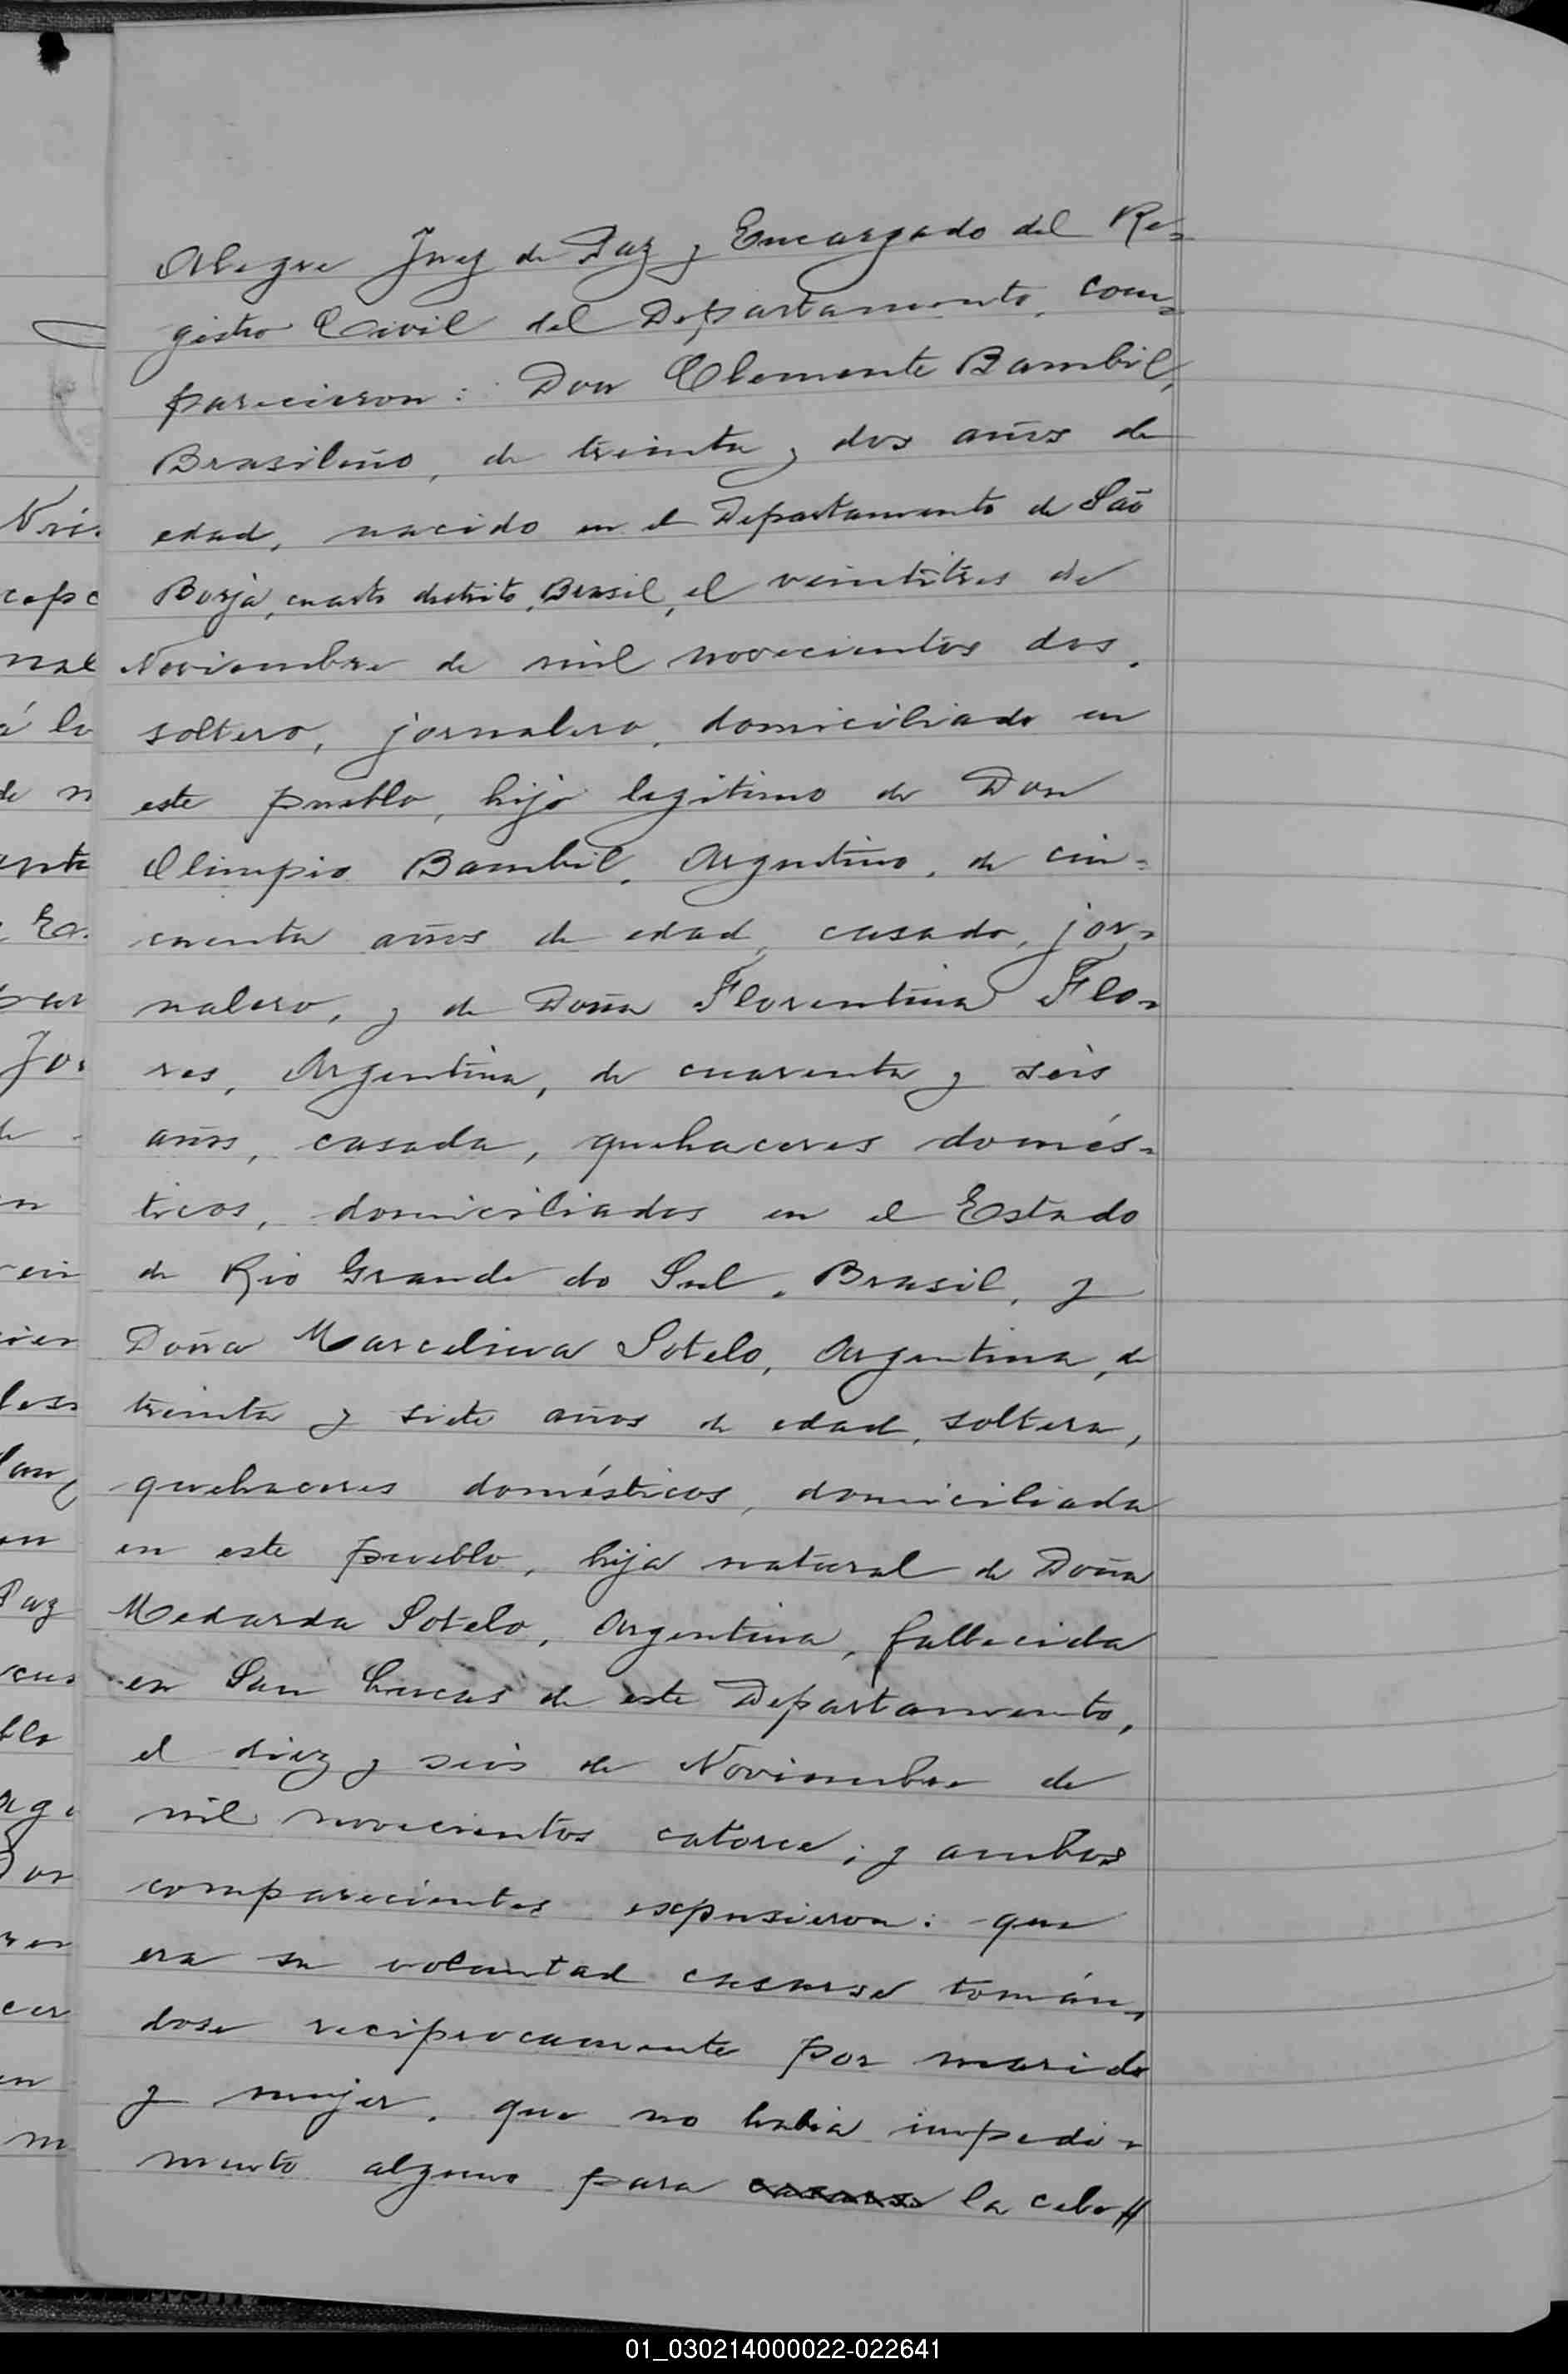 Alegre Juez de Paz y Encargado del Re=
gistro Civil del Departamento, com=
parecieron: Don Clemente Bambil,
Brasileño, de treinta y dos años de
edad, nacido en el Departamento de São
Borja, cuarto distrito, Brasil, el veintitres de
Noviembre de mil novecientos dos,
soltero, jornalero, domiciliado en
este pueblo, hijo legitimo de Don
Olimpio Bambil, Argentino, de cin=
cuenta años de edad, casado, jor=
nalero, y de Doña Florentina Flo=
res, Argentina, de cuarenta y seis
años, casada, quehaceres domés=
ticos, domiciliados en el Estado
de Rio Grande do Sul, Brasil, y
Doña Marcelina Sotelo, Argentina, de
treinta y siete años de edad, soltera,
quehaceres domésticos, domiciliada
en este pueblo, hija natural de Doña
Medarda Sotelo, Argentina, fallecida
en San Lucas de este Departamento,
el diez y seis de Noviembre de
mil novecientos catorce; y ambos
comparecientes expusieron: que
era su voluntad casarse tomán=
dose reciprocamente por marido
y mujer, que no habia impedi=
mento alguno para casarse la cele//
01_030214000022-022641